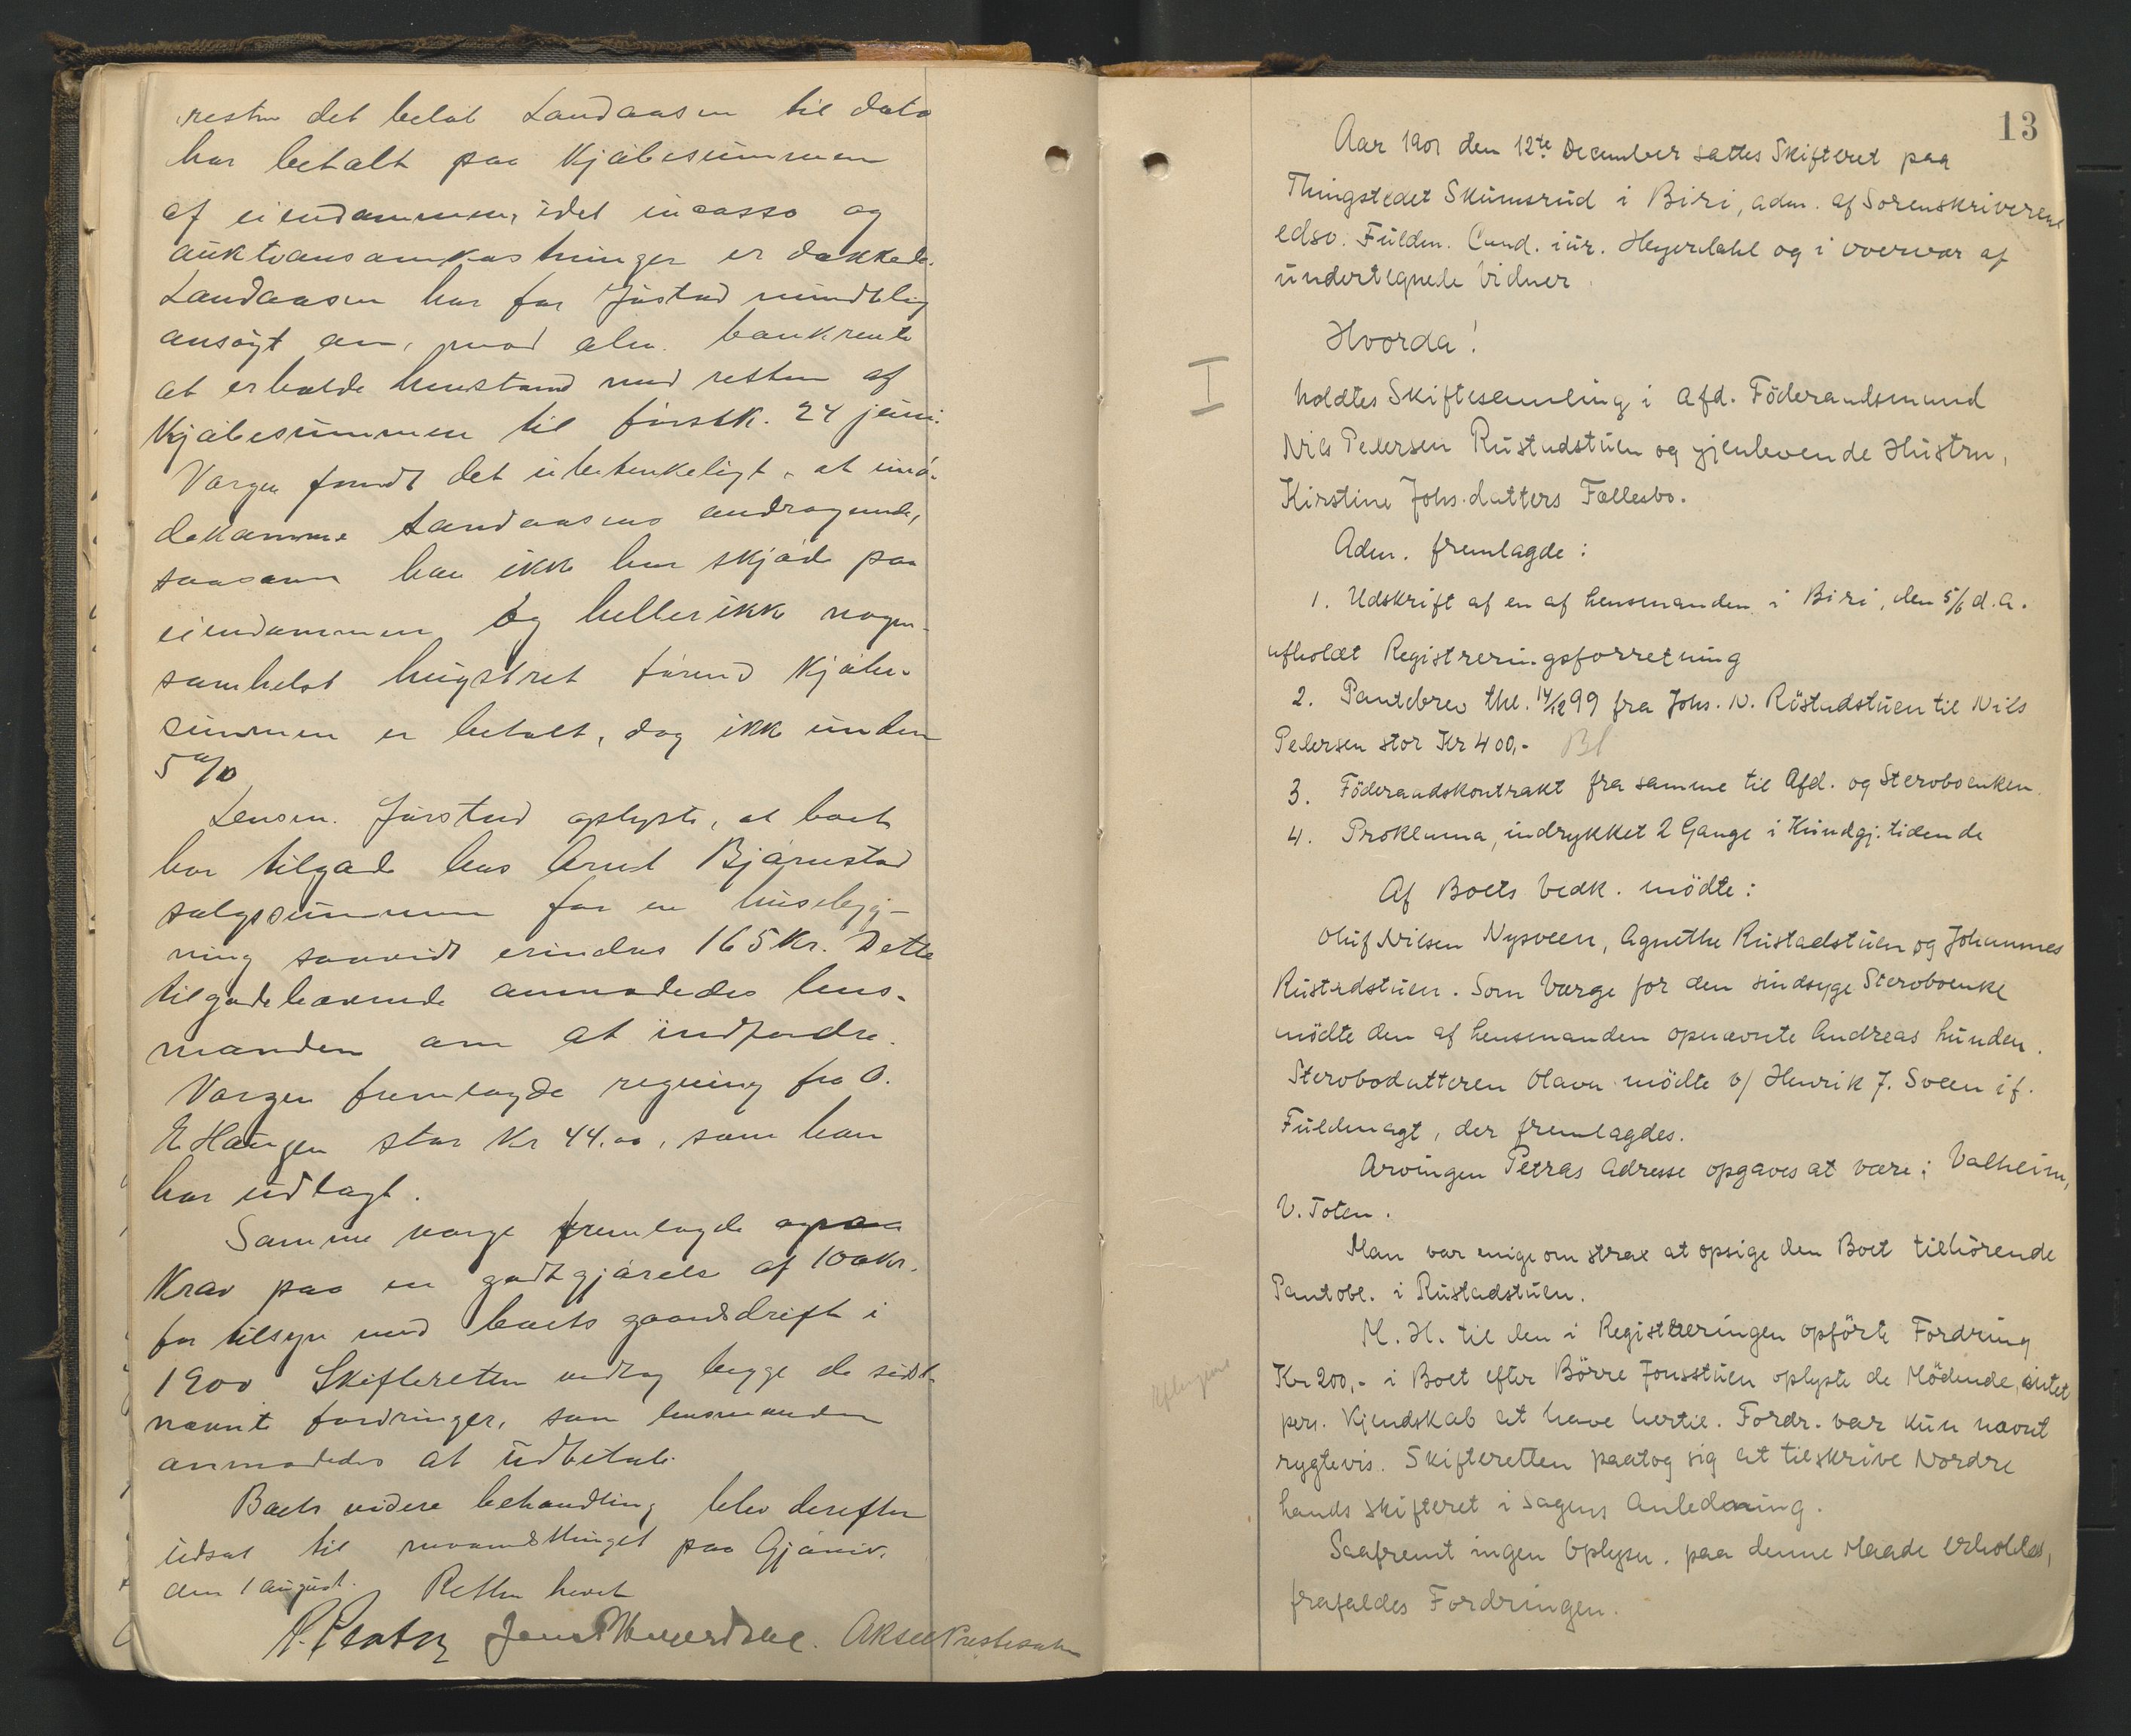 resten det beløb Landaasen til dato
har betalt paa kjøbesummen
af eiendommen, idet incasso og
auktionsomkostninger er dækkede.
Landaasen har for Jørstad mundtlig
ansøgt om, mod alm. bankrente
at erholde henstand med resten af
kjøbesummen til førstk. 24 juni.
Værgen fandt det ubetenkeligt, at imø-
dekomme Landaasens andragende,
saasom han ikke har skjøde paa
eiendommen og heller ikke nogen-
somhelst hugstret førend kjøbe-
summen er betalt, dog ikke under
5 %
Lensm. Jørstad oplyste, at boet
har tilgode hos Arnt Bjørnstad
salgssummen for en husbyg-
ning saavidt erindres 165 Kr. Dette
tilgodehavende anmodedes lens-
manden om at indfordre.
Værgen fremlagde regning fra O.
E. Haugen stor Kr 44.00, som han
har udlagt.
Samme værge fremlagde ogsaa
krav paa en godtgjørelse af 100 kr.
for tilsyn med boets gaardsdrift i
1900 Skifteretten vedtog begge de sidst-
nævnte fordringer, som lensmanden
anmodedes at udbetale.
Boets videre behandling blev derefter
udsat til maanedsthinget paa Gjøvik
den 1 august. Retten hævet
Jens P Heyerdahl. Aksel Prestesæter
13
Aar 1901 den 12te December sattes Skifteret paa
Thingstedet Skumsrud i Biri, adm. af Sorenskriverens
edsv. Fuldm. Cand. iur. Heyerdahl og i overvær af
undertegnede Vidner
Hvorda!
I
holdtes Skiftesamling i Afd. Föderaadsmand
Nils Pedersen Rustadstuen og gjenlevende Hustru,
Kirstine Johs.datters Fællesbo.
Adm. fremlagde:
1. Udskrift af en af Lensmanden i Biri, den 5/6 d.A.
afholdt Registreringsforretning
2. Pantebrev thl. 14/12 99 fra Johs. N. Rüstadstuen til Nils
Pedersen stor Kr 400,- Bl
3. Föderaadskontrakt fra samme til Afd. og Sterboenken.
4. Proklama, indrykket 2 Gange i Kundgj.tidende
Af Boets Vedk. mödte:
Oluf Nilsen Nysveen, Agnethe Rustadstuen og Johannes
Rustadstuen. Som Værge for den sindsyge Sterboenke
mödte den af Lensmanden opnævnte Andreas Lunden.
Sterbodatteren Olava mödte v/ Henrik J. Sveen if.
Fuldmagt, der fremlagdes.
Arvingen Petras Adresse opgaves at være: Valheim,
V. Toten.
Man var enige om strax at opsige den Boet tilhörende
Pantobl. i Rustadstuen.
M. H. til den i Registreringen opförte Fordring
Kr 200,- i Boet efter Börre Jonsstuen oplyste de Mödende, intet
pers. Kjendskab at have hertil. Fordr. var kun nævnt
rygtevis. Skifteretten paatog sig at tilskrive Nordre
Lands skifteret i Sagens Anledning.
Saafremt ingen Oplysn. paa denne Maade erholdes,
frafaldes Fordringen.